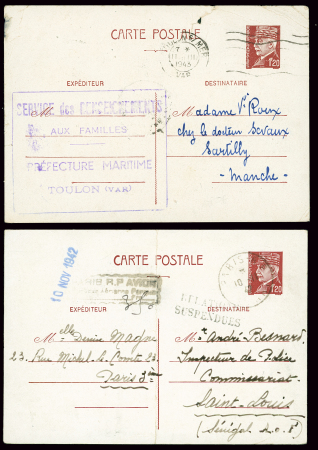 CARTE POSTALE
1945
VAR
1,20
EXPÉDITEUR
DESTINATAIRE
SERVICE des RENSEIGNEMENTS
AUX FAMILLES
PRÉFECTURE MARITIME
TOULON (VAR)
M
Madame Vᵉ Roux
chez le docteur Sevaux
Sartilly
- Manche -
CARTE POSTALE
10 NOV 1942
PARIS R.P AVION
PARIS
1,20
RELATIONS
SUSPENDUES
EXPÉDITEUR
DESTINATAIRE
Mˡˡᵉ Denise
23. Rue Michel le Comte 23.
Paris 3ᵉᵐᵉ
Mʳ André Besnard
Inspecteur de Police
Commissariat
Saint-Louis
(Sénégal A.O.F)